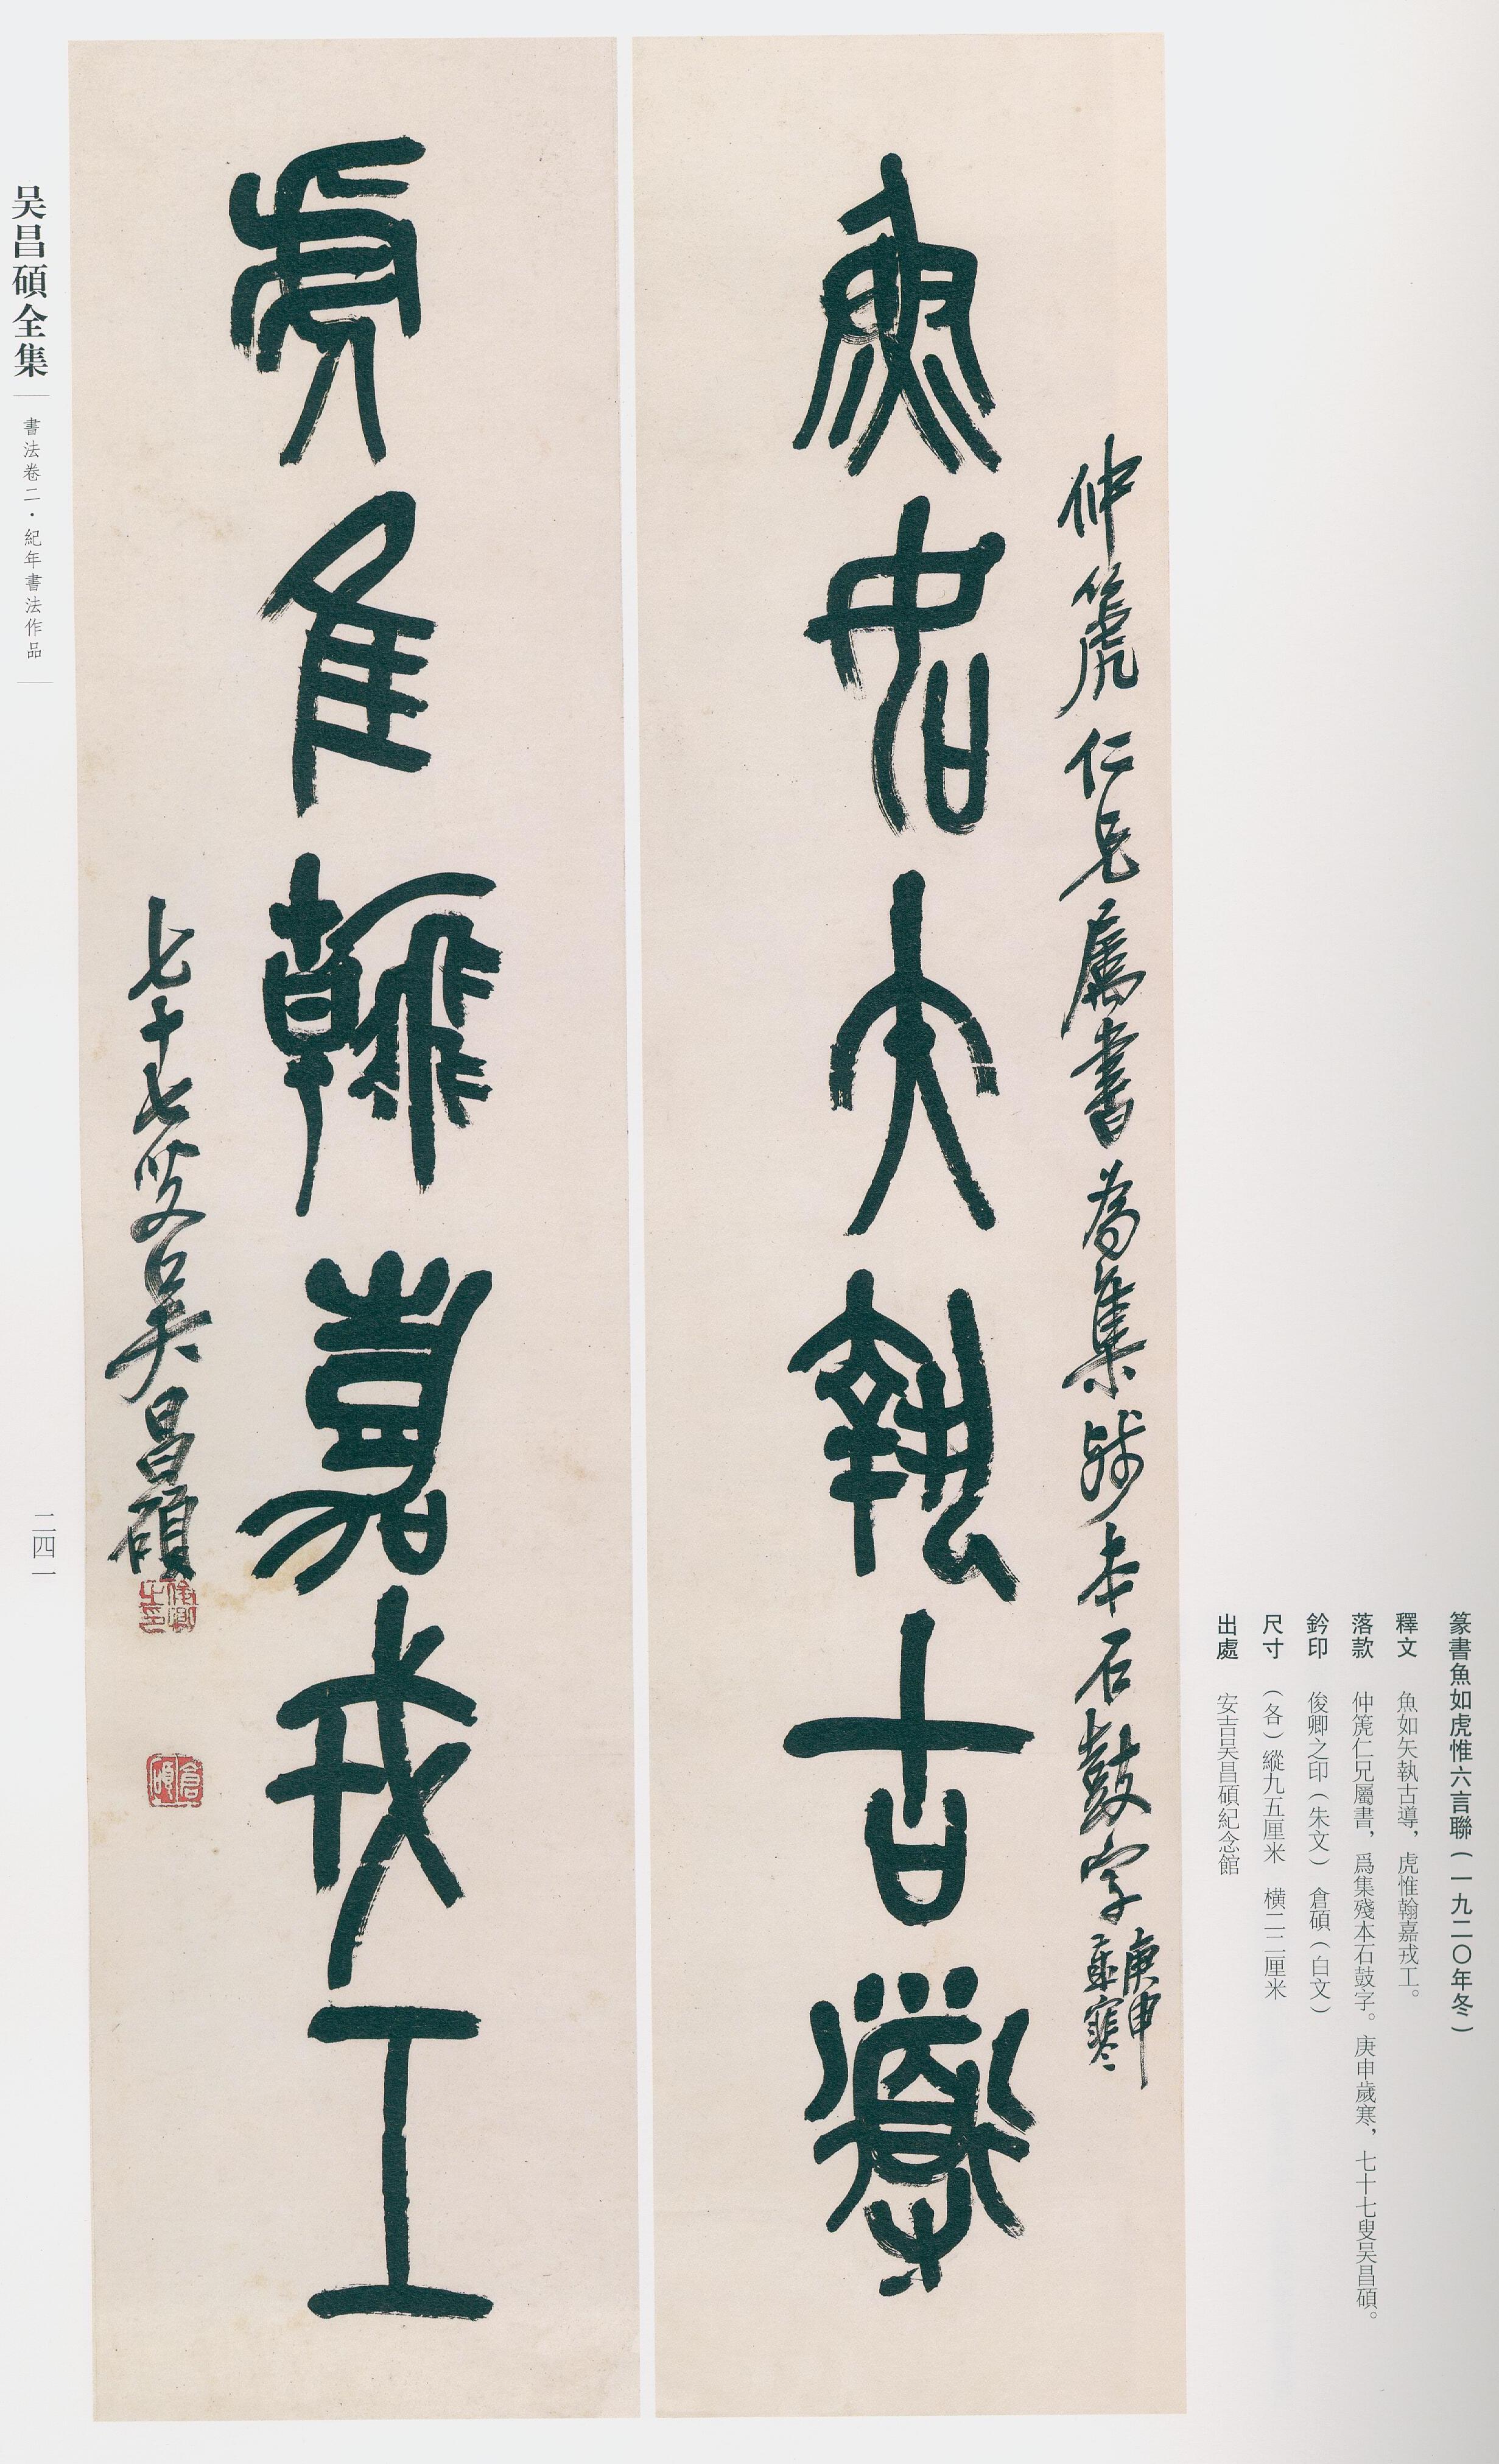 篆書魚如虎惟六言聯（一九二〇年冬）
釋文 魚如矢執古導，虎惟翰嘉戎工。
落款 仲箎仁兄屬書，爲集殘本石鼓字。庚申歲寒，七十七叟吴昌碩。
鈐印 俊卿之印（朱文） 倉碩（白文）
尺寸 （各）縱九五厘米 橫二二厘米
出處 安吉吴昌碩紀念館
仲箎仁兄屬書為集殘本石鼓字庚申
歲寒
魚如矢執古導
虎惟翰嘉戎工
七十七叟吴昌碩
俊卿之印
倉碩
吴昌碩全集
書法卷二·紀年書法作品
二四一